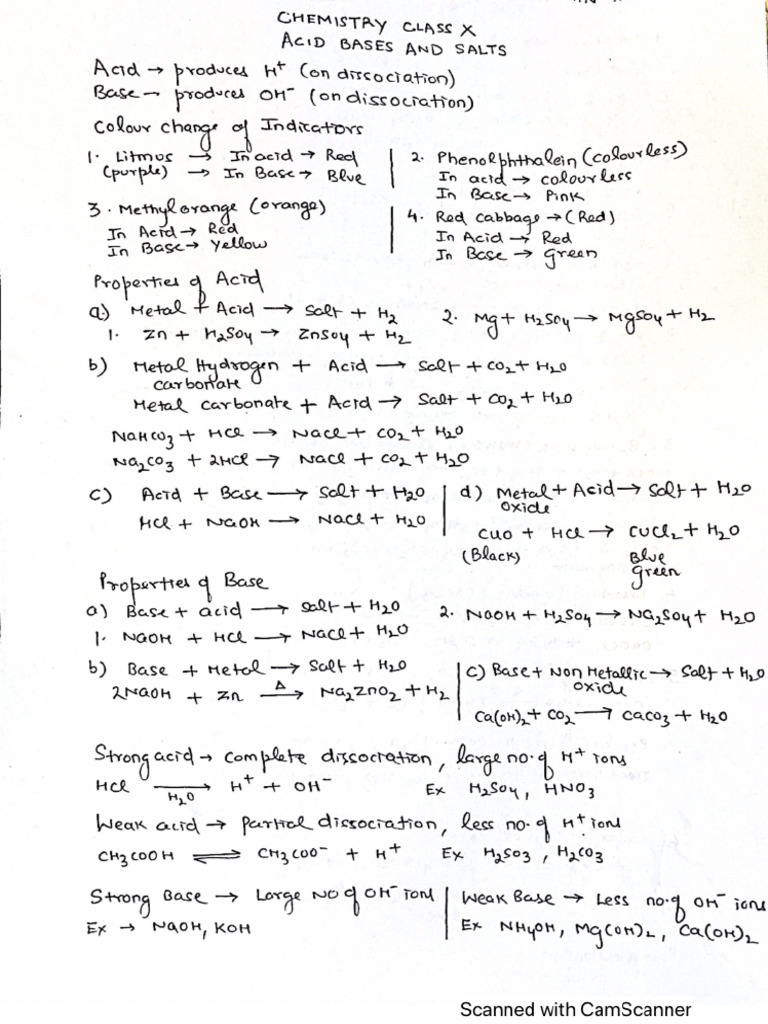 CHEMISTRY CLASS X
ACID BASES AND SALTS
Acid → produces H⁺ (on dissociation)
Base → produces OH⁻ (on dissociation)
Colour change of Indicators
1. Litmus → In acid → Red
(purple) → In Base → Blue
2. Phenolphthalein (colourless)
In acid → colourless
In Base → Pink
3. Methyl orange (orange)
In Acid → Red
In Base → yellow
4. Red cabbage → (Red)
In Acid → Red
In Base → green
Properties of Acid
a) Metal + Acid → Salt + H₂
1. Zn + H₂SO₄ → ZnSO₄ + H₂
2. Mg + H₂SO₄ → MgSO₄ + H₂
b) Metal Hydrogen + Acid → Salt + CO₂ + H₂O
carbonate
Metal carbonate + Acid → Salt + CO₂ + H₂O
NaHCO₃ + HCl → NaCl + CO₂ + H₂O
Na₂CO₃ + 2HCl → NaCl + CO₂ + H₂O
c) Acid + Base → Salt + H₂O
HCl + NaOH → NaCl + H₂O
d) Metal + Acid → Salt + H₂O
oxide
CuO + HCl → CuCl₂ + H₂O
(Black) Blue
green
Properties of Base
a) Base + acid → Salt + H₂O
1. NaOH + HCl → NaCl + H₂O
2. NaOH + H₂SO₄ → Na₂SO₄ + H₂O
b) Base + Metal → Salt + H₂O
2NaOH + Zn Δ→ Na₂ZnO₂ + H₂
c) Base + Non Metallic → Salt + H₂O
oxide
Ca(OH)₂ + CO₂ → CaCO₃ + H₂O
Strong acid → complete dissociation, large no. of H⁺ ions
HCl →
H₂O H⁺ + OH⁻ Ex H₂SO₄, HNO₃
Weak acid → partial dissociation, less no. of H⁺ ions
CH₃COOH ⇌ CH₃COO⁻ + H⁺ Ex H₂SO₃, H₂CO₃
Strong Base → Large No of OH⁻ ions
Ex → NaOH, KOH
Weak Base → Less no. of OH⁻ ions
Ex NH₄OH, Mg(OH)₂, Ca(OH)₂
Scanned with CamScanner